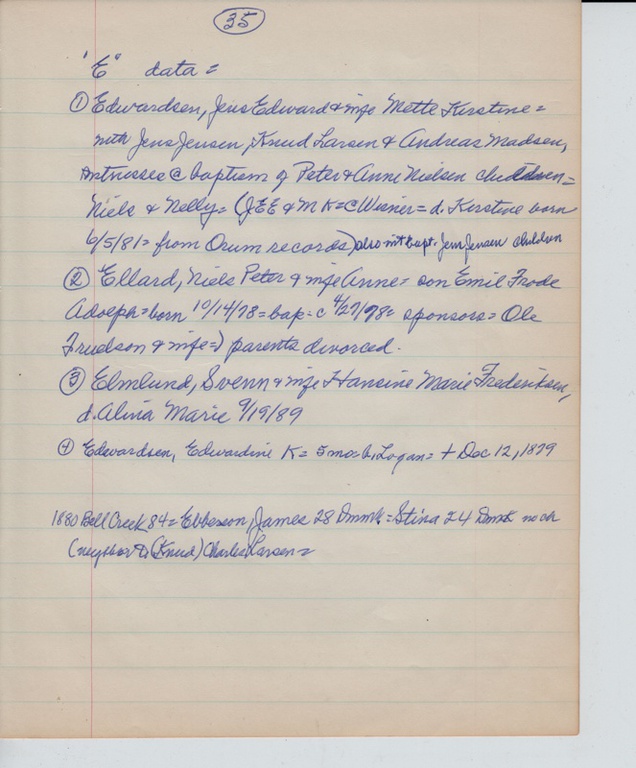 35
"E" data =
① Edwardsen, Jens Edward & wife Mette Kirstine =
with Jens Jensen, Knud Larsen & Andreas Madsen,
witnesses @ baptism of Peter & Anne Nielsen children =
Niels & Nelly = (JEE & MK = C Wisner = d. Kirstine born
6/5/81 = from Orum records) also wit bapt. Jens Jensen children
② Ellard, Niels Peter & wife Anne = son Emil Frode
Adolph = born 10/14/78 = bap = c 4/27/78 = sponsors = Ole
& wife =) parents divorced.
③ Elmlund, Svenn & wife Hansine Marie Frederiksen,
d. Alina Marie 9/19/89
④ Edwardsen, Edwardine K = 5 mo = b. Logan = + Dec 12, 1879
1880 Bell Creek 84 = Ebbeson, James 28 Dnmk = Stina 24 Dnmk no ch
(neighbor to (Knud) Charles Larsen =